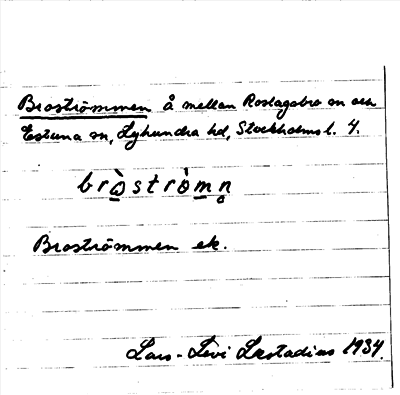 Broströmmen å mellan Roslagsbro sn och
Estuna sn, Lyhundra hd, Stockholms l. 4.
bròströ̀mn̥
Broströmmen ek.
Lars-Levi Læstadius 1934.